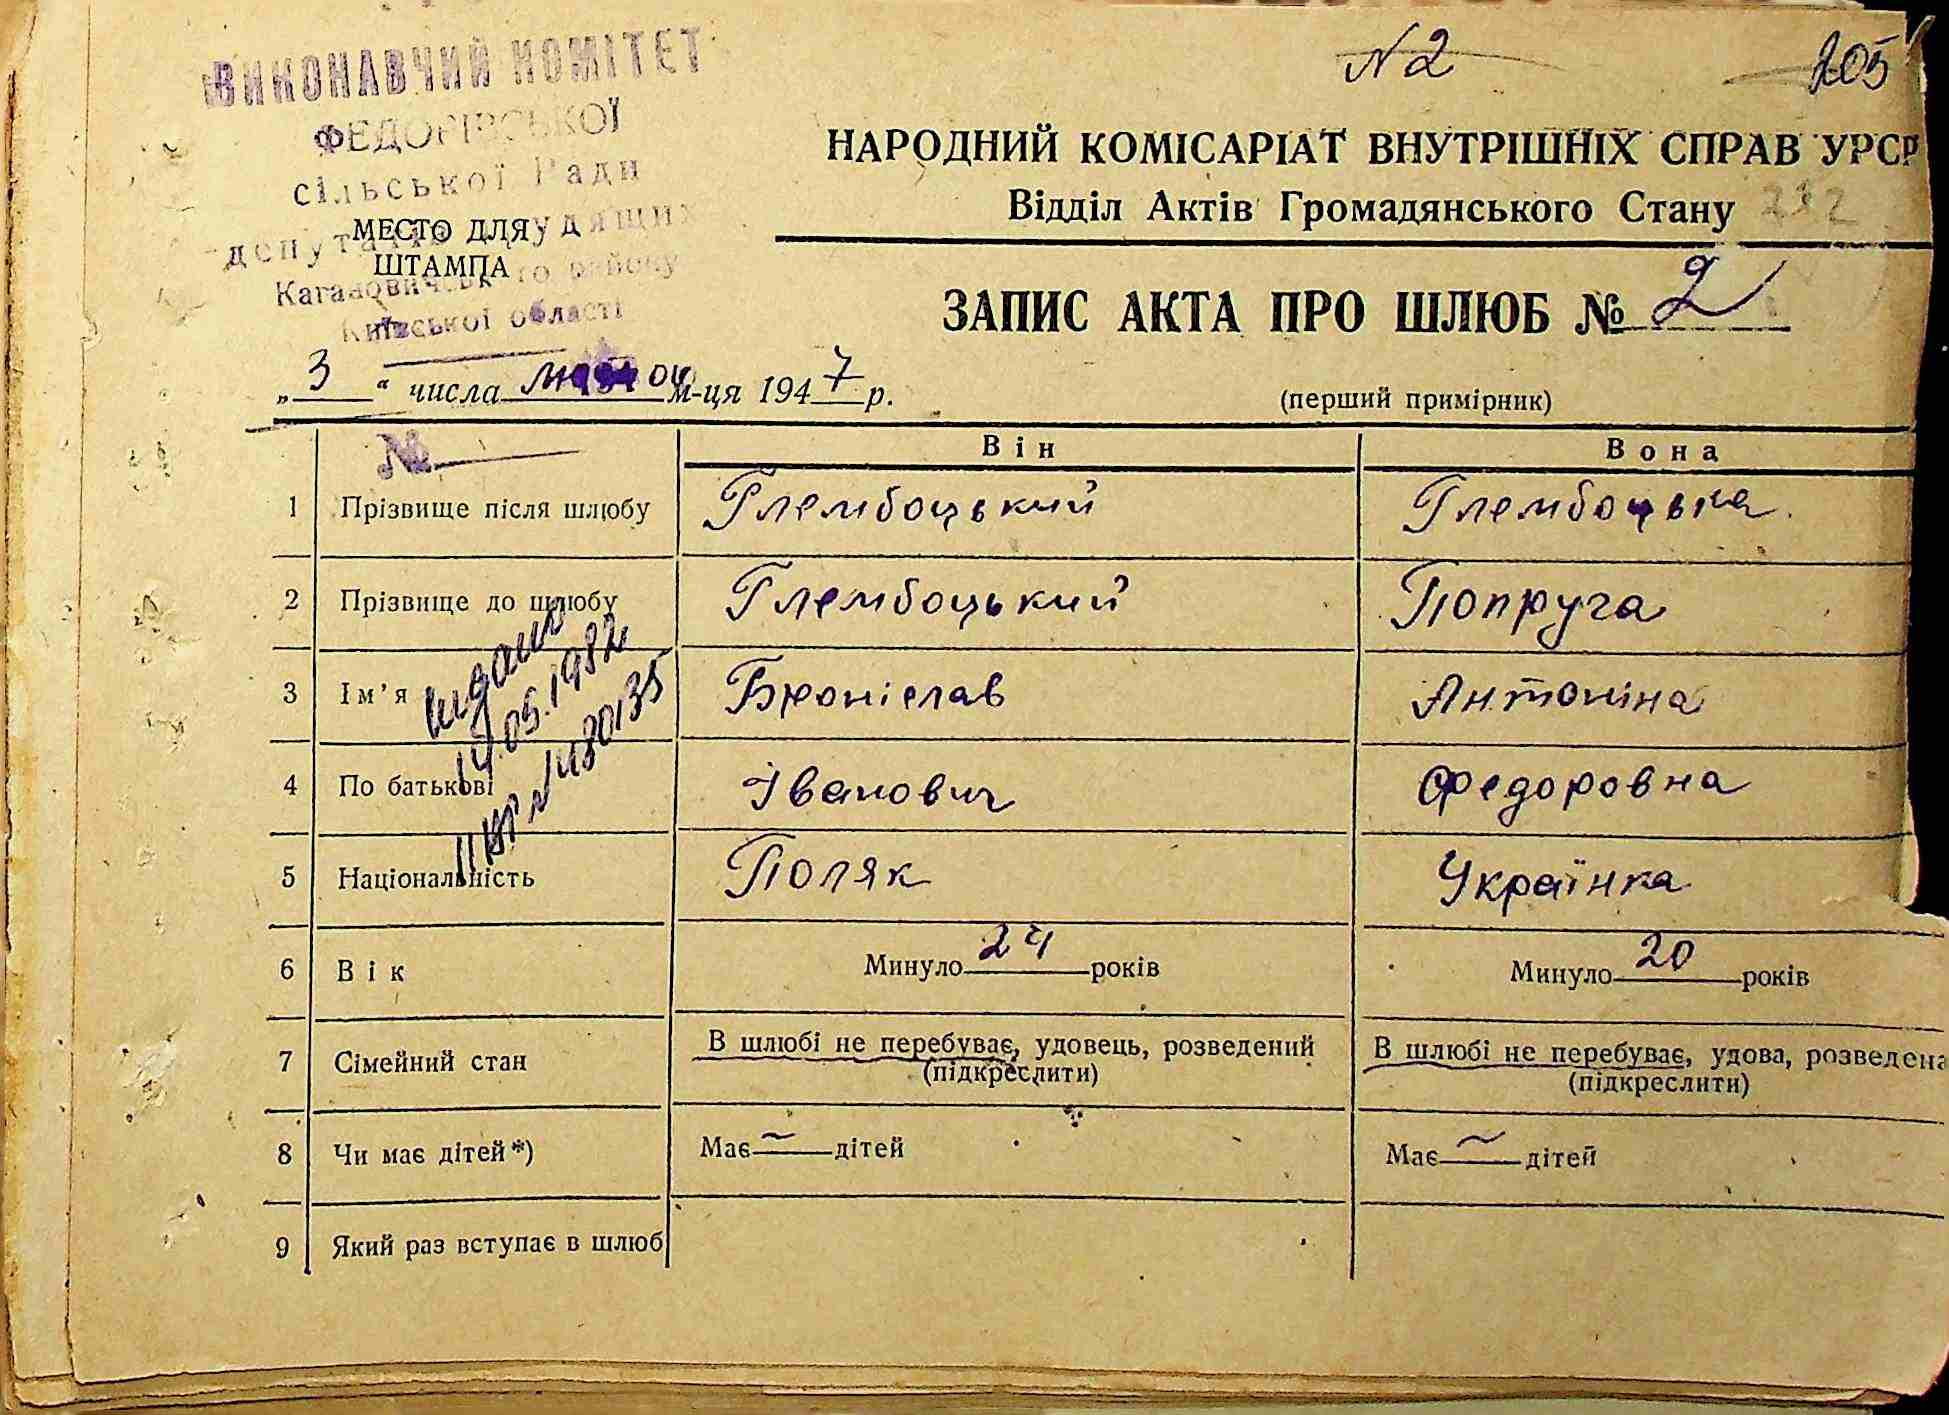 ВИКОНАВЧИЙ КОМІТЕТ
ФЕДОРІВСЬКОЇ
сільської Ради
депутатів трудящих
Кагановичського району
Київської області
МЕСТО ДЛЯ
ШТАМПА
№ 2
205
НАРОДНИЙ КОМІСАРІАТ ВНУТРІШНІХ СПРАВ УРСР
Відділ Актів Громадянського Стану 232
ЗАПИС АКТА ПРО ШЛЮБ № 2
„ 3 “ числа лютого м-ця 1947 р.
(перший примірник)
№
Він Вона
1 Прізвище після шлюбу Глембоцький Глембоцька
2 Прізвище до шлюбу Глембоцький Попруга
3 Ім’я Броніслав Антоніна
4 По батькові Іванович Федоровна
5 Національність Поляк Українка
6 Вік Минуло 24 років Минуло 20 років
7 Сімейний стан В шлюбі не перебуває, удовець, розведений В шлюбі не перебуває, удова, розведена
(підкреслити) (підкреслити)
8 Чи має дітей*) Має ~ дітей Має ~ дітей
9 Який раз вступає в шлюб
видано
14.05.1982
№ 480135